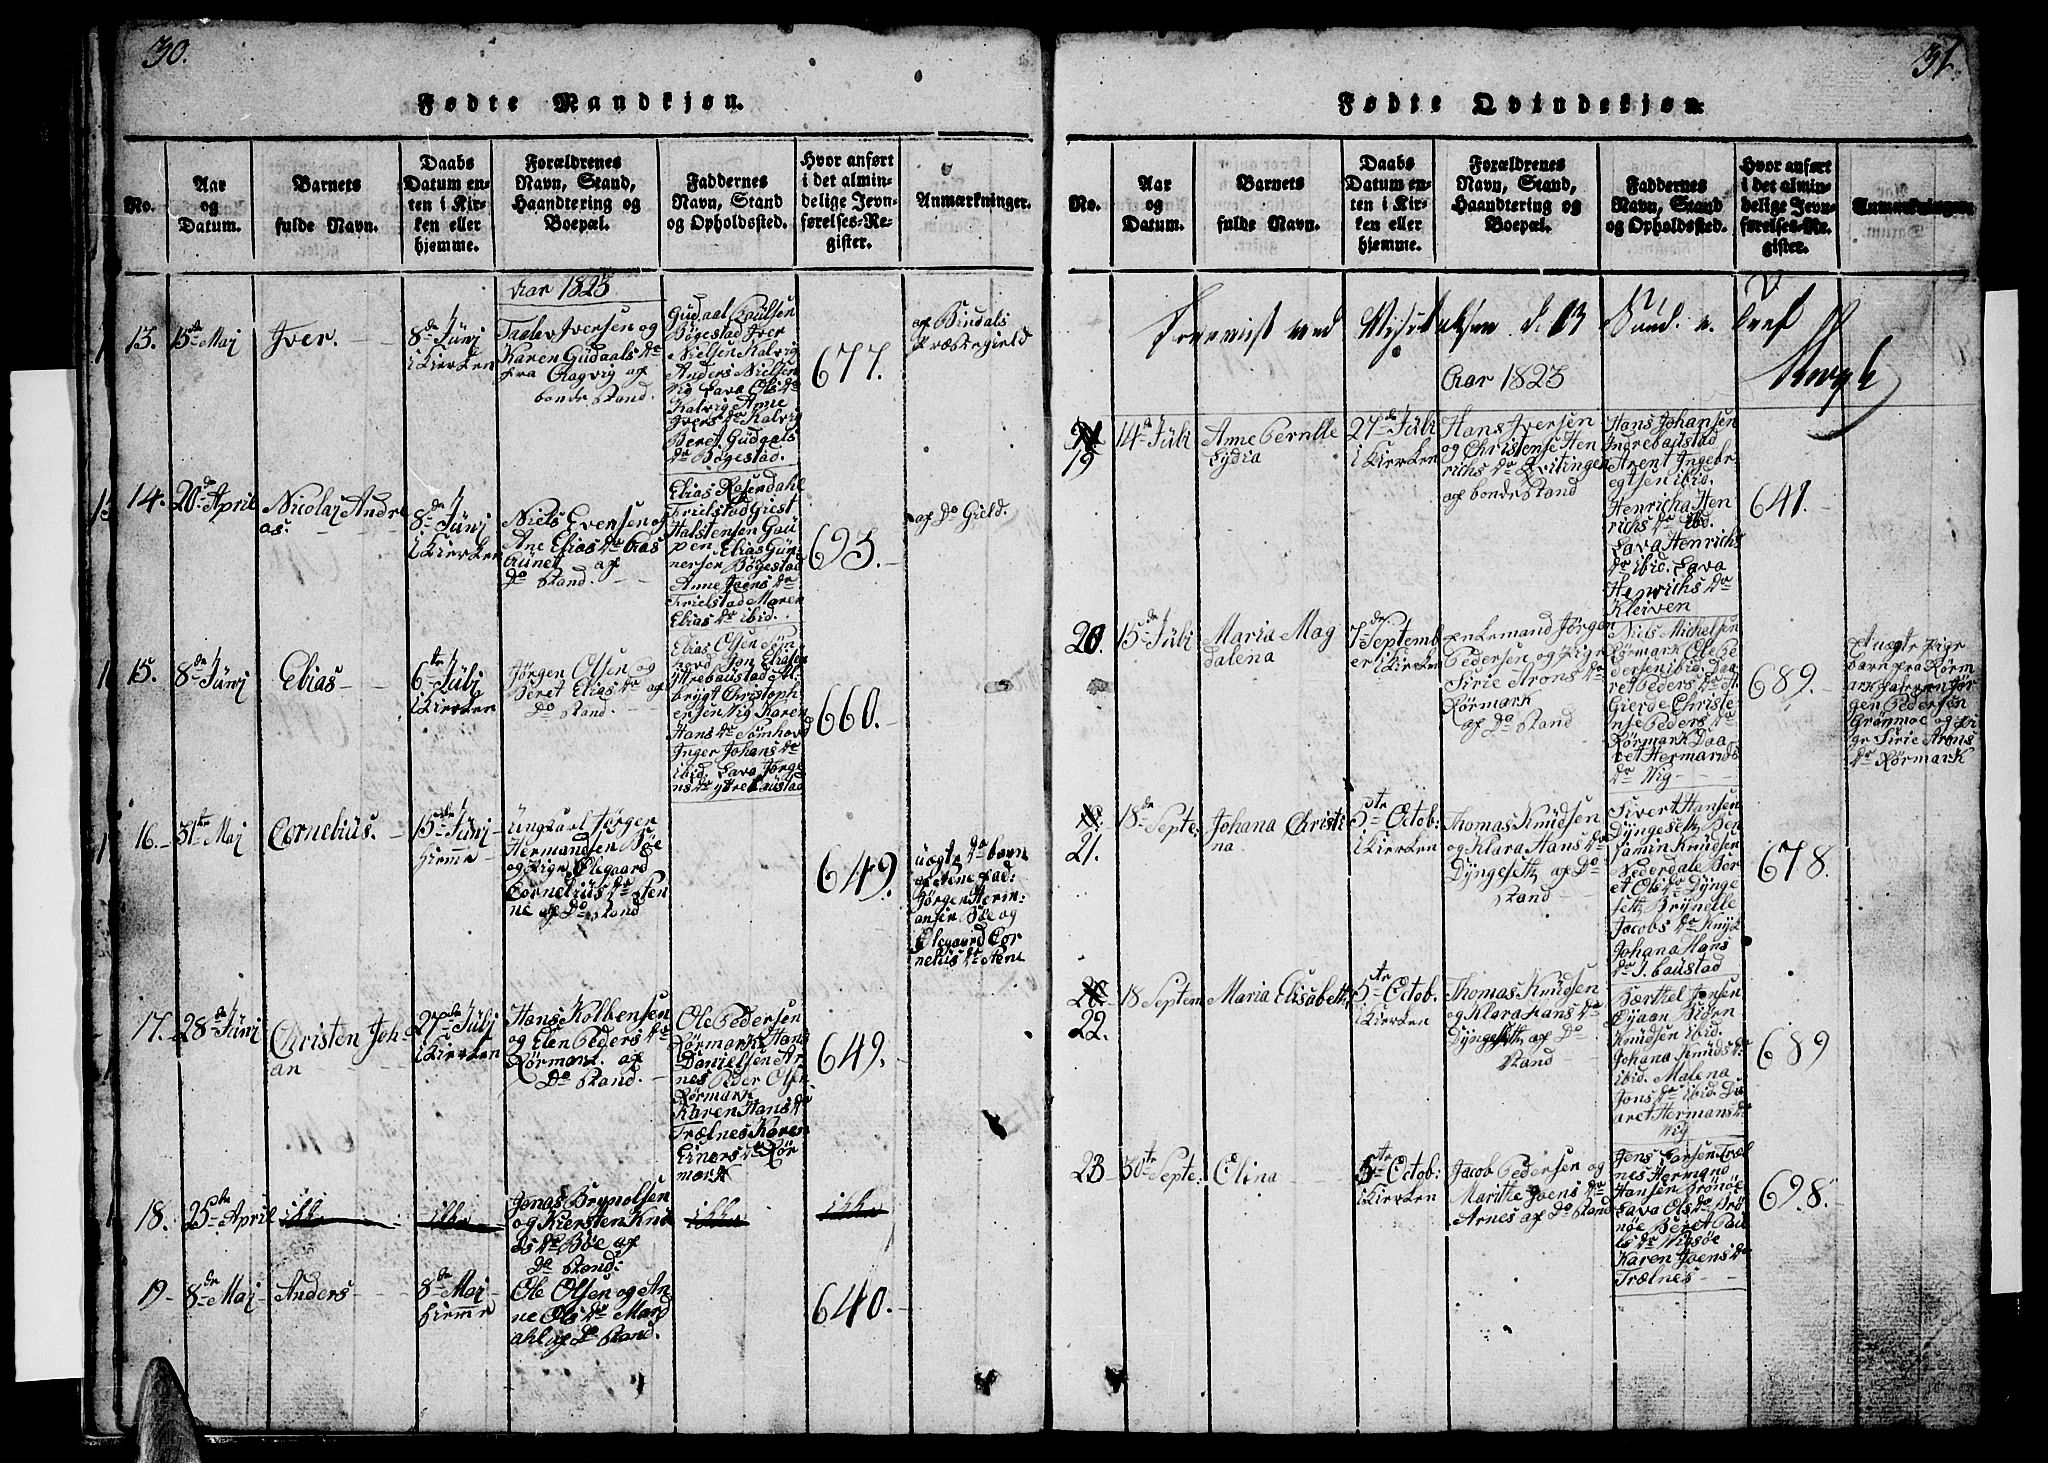 30.
Fødte Mandkjøn.
No.
Aar
og
Datum.
Barnets
fulde Navn.
Daabs
Datum en-
ten i Kir-
ken eller
hjemme.
Forældrenes
Navn, Stand,
Haandtering og
Boepæl.
Faddernes
Navn, Stand
og Opholdssted.
Hvor anført
i det almin-
delige Jevn-
førelses-Re-
gister.
Anmærkninger.
Aar 1823
13.
15de Maj
Jver.
8de Jünj
i Kierken
Iversen og
Karen Gudaals Dr
fra
bonde Stand.
Gudaal Paülsen
Bøgestad Jver
Nielsen Kalvig
Anders Nielsen
Vig Lava Ols Dr
Kalvig Anne
Jvers Dr Kalvig
Beret Güdaals
Dr Bøgestad.
677.
af Bindals
Præstegield
14.
20de April
Nicolaj Andre
as.
8de Jünj
i Kierken
Niels Evensen og
Ane Elias Dr
af
Do Stand.
Elias Rosendahl
Trielstad Giest
Halstensen Gaü
pen Elias Gün
nersen Bøgestad
Anne Joens Dr
Trielstad Maren
Elias Dr ibid.
693.
af Do Gield.
15.
8de Jünj
Elias
6te Jülj
i Kierken
Jørgen Olsen og
Beret Elias Dr af
Do Stand.
Elias Olsen Søm
hovd Jon Eliasen
Ytrebaustad Al
brygt Christoph
ersen Vig Karen
Hans Dr Sømhovd
Inger Johans Dr
ibid. Lava Jørge
ns Dr Ytrebaüstad
660.
16.
31te Maj
Cornelius.
15de Jünj
hiemme
Ungkarl Jørgen
Hermandsen Bøe
og Pige Olegaard
Cornelius Dr Sten
ne af Do Stand
649.
uægte Do barn
Jørgen Herm
ansen Bøe og
Olegaard Cor
nelius Dr Stene
17.
28de Jünj
Christen Joh
an
27de Jülj
i Kierken
Hans Kolbensen
og Elen Peders Dr
Rørmark af
Do Stand.
Ole Pedersen
Rørmark Hans
Danielsen Ar
nes Peder Olsen
Rørmark
Karen Hans Dr
Trælnes Karen
Einers Dr Rør
mark
649.
18.
25de April
ikke
ikke
Jonas Brynolsen
og Kiersten Knü
ds Dr Bøe af
Do Stand:
ikke
ikke
19
8de Maj
Anders
8de Maj
hiemme
Ole Olsen og An
ne Ols Dr Mard
ahl af Do Stand.
640.
31
Fødte Qvindekjøn.
No.
Aar
og
Datum.
Barnets
fulde Navn.
Daabs
Datum en-
ten i Kir-
ken eller
hjemme.
Forældrenes
Navn, Stand,
Haandtering og
Boepæl.
Faddernes
Navn, Stand
og Opholdssted.
Hvor anført
i det almin-
delige Jevn-
førelses-Re-
gister.
Anmærkninger.
Aar 1823
19
14de Jüli
Anne Pernille
Lydia
27de Jüli
i Kierken
Hans Jversen
og Christense Hen
richs Dr Kvitingen
af bonde Stand
Hans Johansen
Indrebaüstad
Arent Ingebr
egtsen ibid.
Henricha Hen
richs Dr ibid.
Lava Henrichs
Dr ibid. Lava
Henrichs Dr
Kleiven
641.
20.
15de Jüli
Maria Mag
dalena
7de Septemb
er i Kierken
Enkemand Jørgen
Pedersen og Pige
Sirie Arons Dr
Rørmark
af Do Stand
Niels Michelsen
Rørmark Ole Pe
dersen ibid. Daa
ret Peders Dr
Gierde Christe
nse Peders Dr
Rørmark Daa
ret Hermands
Dr Vig
689.
Et uægte
barn fra Rørm
ark faderen Jør
gen Pedersen
Grønmoe og Pi
ge Sirie Arons
Dr Rørmark
21.
18de Septe:
Johana Christi
na
5te Octob:
i Kierken
Thomas Knüdsen
og Klara Hans Dr
Dyngeseth af Do
Stand
Sivert Hansen
Dyngeseth Ben
jamin Knüdsen
Sederdale Ber
et Ols Dr Dynge
seth Brynelle
Jacobs Dr
Johana Hans
Dr I. baüstad
678.
22.
18 Septem
Maria Elisabeth
5te Octob.
i Kierken
Thomas Knüdsen
og Klara Hans Dr
Dyngeseth af Do
Stand
Barthel Jensen
Biørn
Knüdsen ibid.
Johana Knüds Dr
ibid. Malena
Jons Dr ibid. Da
aret Hermans Dr
Vig
689
23
30te Septe:
Elina
5te Octob:
i Kierken
Jacob Pedersen og
Marithe Joens Dr
Arnes af Do Stand
Jens Larsen Træl
nes Hermand
Hansen Brønøe
Lava Ols Dr Brø
nøe Beret Pau
ls Dr
Karen Joens Dr
Trælnes
698.